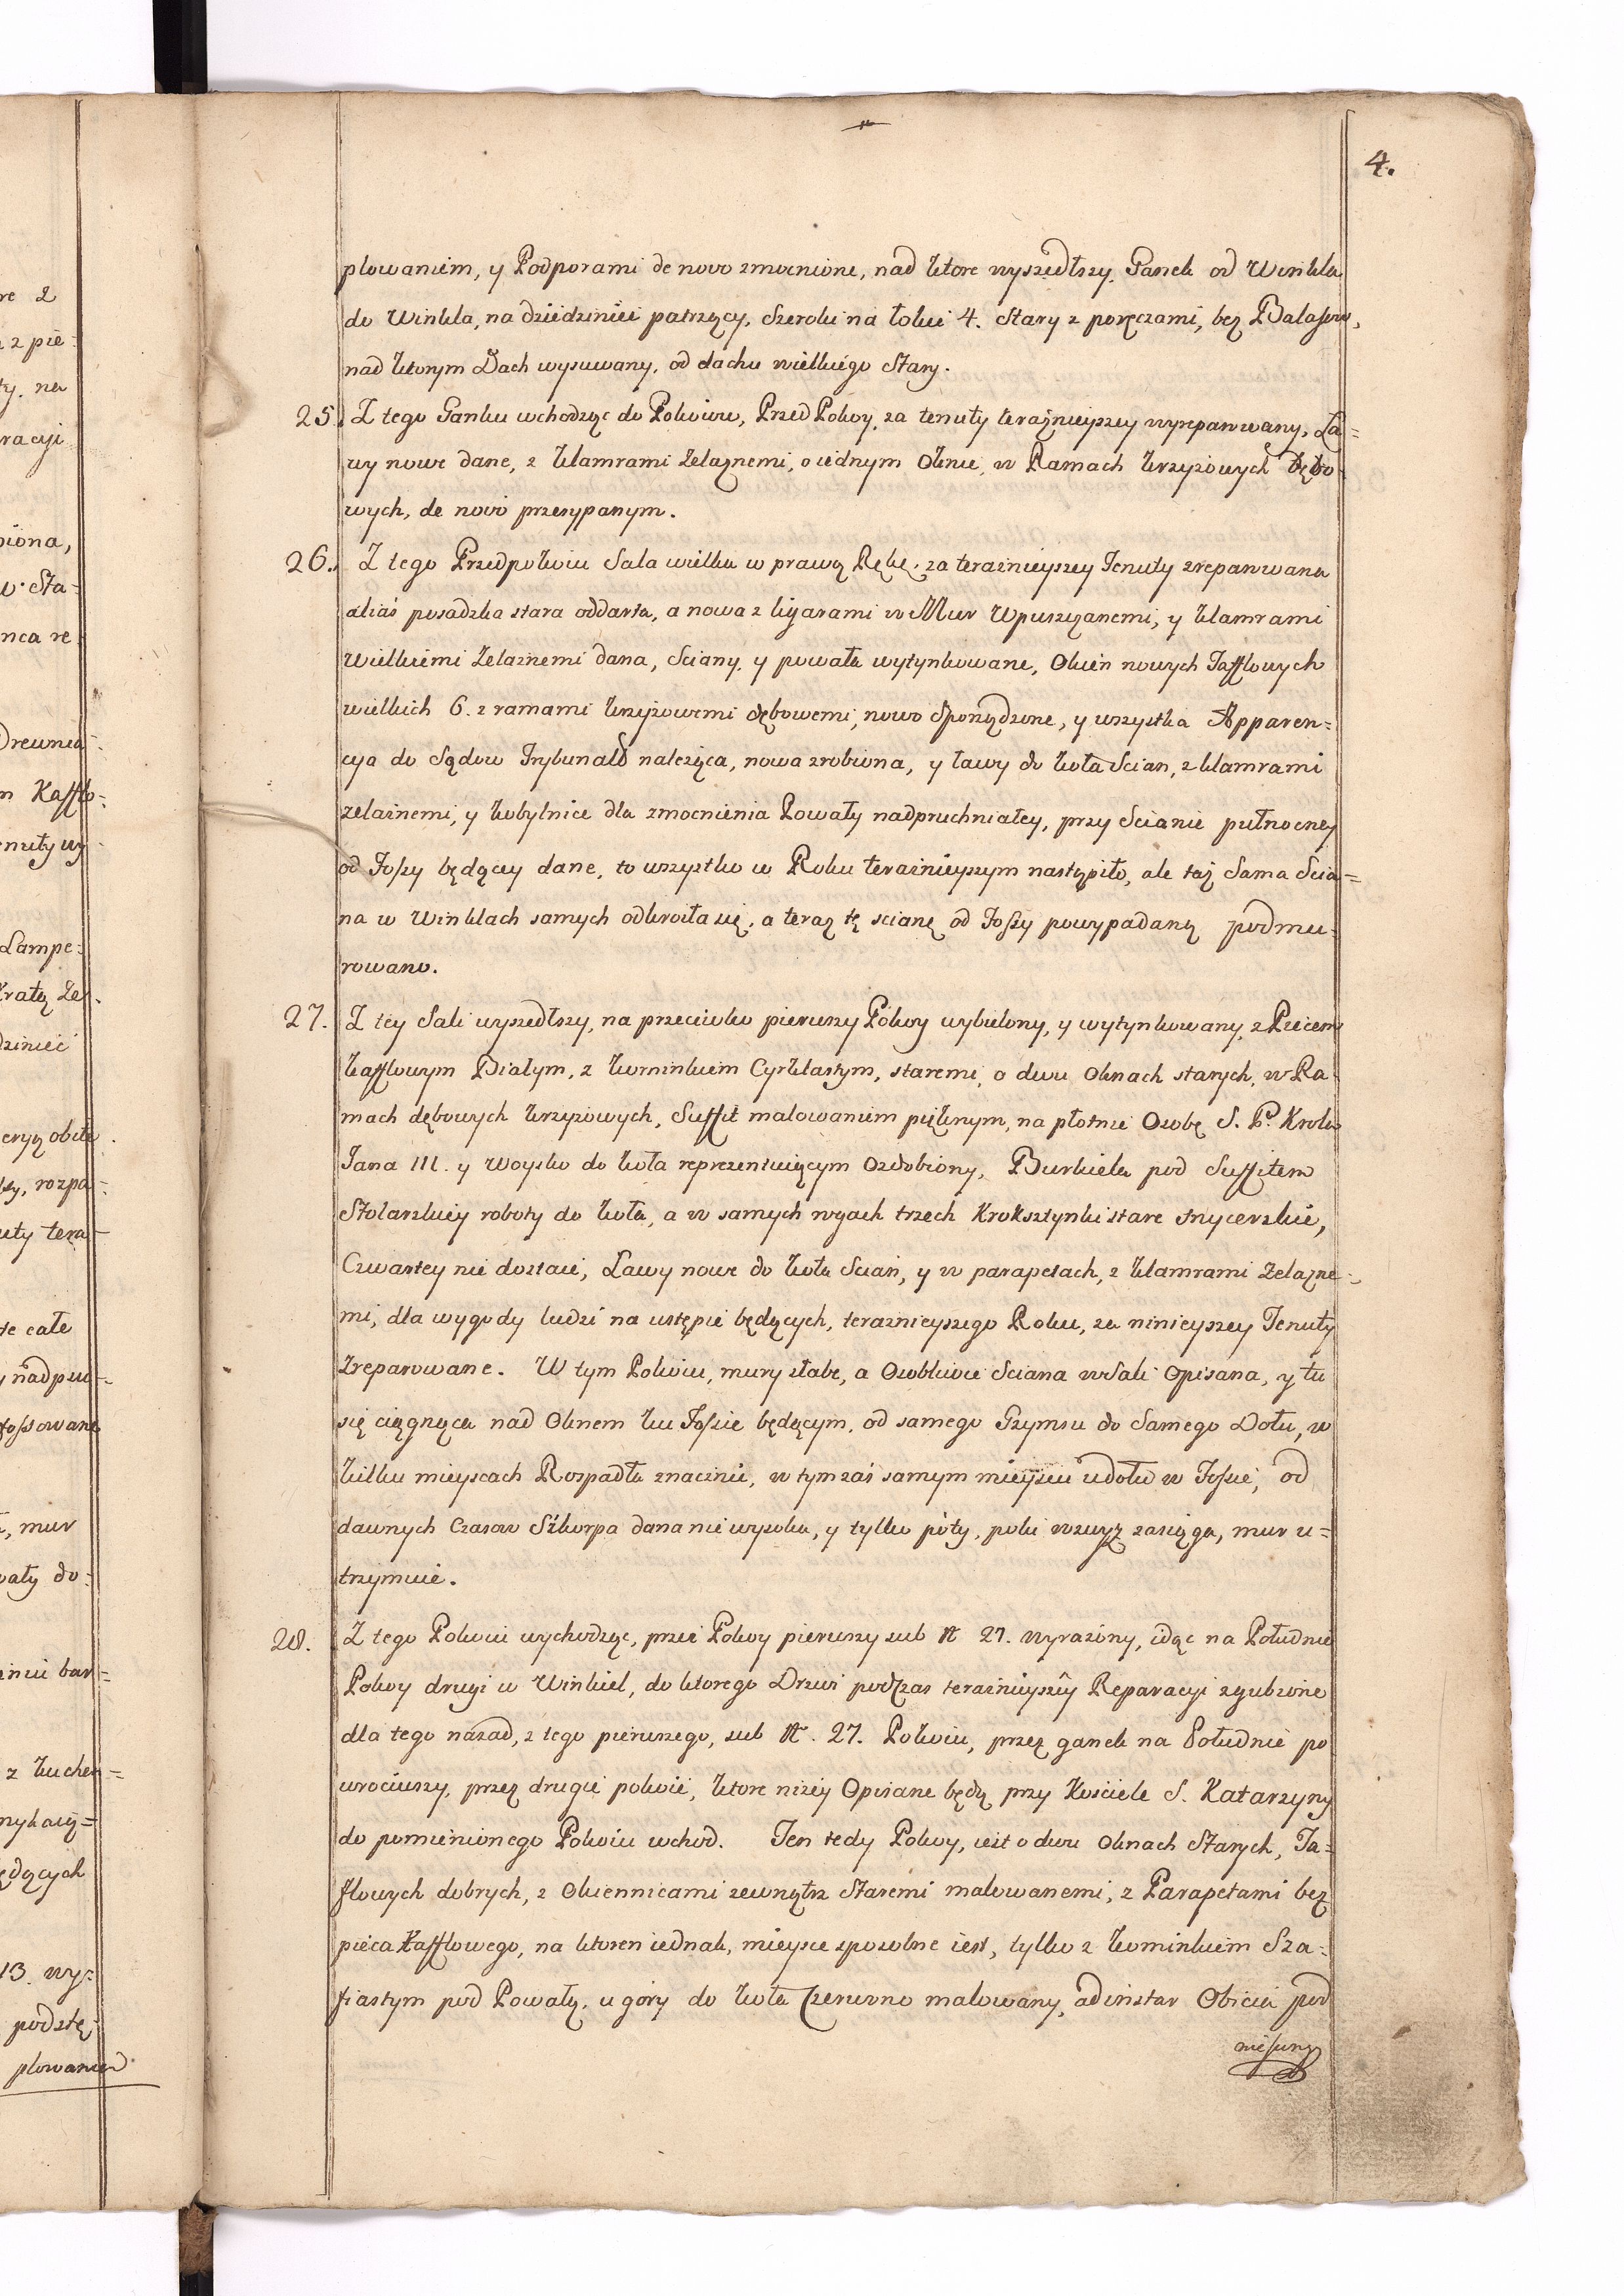 4.
plowaniem, y Podporami de novo zmocnione, nad ktore wyszedłszy, Ganek od Winkla
do Winkla, na dziedziniec patrzący, Szeroki na łokci 4. Stary z poręczami, bez Balasow,
nad ktorym Dach wysuwany, od dachu wielkiego Stary.
25. Z tego Ganku wchodząc do Pokoiow, Przed Pokoy, za tenuty teraźnieyszey wyreparowany, Ła=
wy nowe dane, z klamrami żelaznemi, o iednym Oknie, w Ramach krzyżowych dębo=
wych, de novo przesypanym.
26. Z tego Przedpokoiu Sala wielka w prawą Rękę, za teraznieyszey Tenuty zreparowana
alias posadzka stara oddarta, a nowa z ligarami w Mur Wpuszczanemi, y klamrami
Wielkiemi żelaznemi dana, Sciany, y powała wytynkowane, Okien nowych Tafflowych
wielkich 6. z ramami krzyżowemi dębowemi, nowo Sporządzone, y wszystka Apparen=
cya do Sądow Trybunalö należąca, nowa zrobiona, y ławy do koła Scian, z klamrami
żelaznemi, y kobylnice dla zmocnienia Powały nadpruchniałey, przy Scianie pułnocney
od Fossy będącey dane, to wszystko w Roku teraznieyszym nastąpiło, ale taż Sama Scia=
na w Winklach samych odkroiła się, a teraz tę scianę od Fossy powypadaną podmu=
rowano.
27. Z tey Sali wyszedłszy, na przeciwko pierwszy Pokoy wybielony, y wytynkowany, z Piecem
kafflowym Białym, z kominkiem Cyrklastym, staremi, o dwu Oknach starych, w Ra=
mach dębowych krzyżowych, Suffit malowaniem pięknym, na płotnie Osobę S. P. Krola
Jana III. y Woysko do koła reprezentuiącym Ozdobiony, Burkiela pod Suffitem
Stolarskiey roboty do koła, a w samych rogach trzech Kroksztynki stare snycerskie,
Czwartey nie dostaie, Ławy nowe do koła Scian, y w parapetach, z klamrami żelazne=
mi, dla wygody ludzi na ustępie będących, teraznieyszego Roku, za ninieyszey Tenuty
Zreparowane. W tym Pokoiu, mury słabe, a Osobliwie Sciana w Sali Opisana, y tu
się ciągnąca nad Oknem ku Fossie będącym, od samego Gzymsu do Samego Dołu, w
kilku mieyscach Rospadła znacznie, w tym zaś samym mieyscu u dołu w Fossie, od
dawnych Czasow Szkorpa dana nie wysoka, y tylko póty, poki wzwyż zasięga, mur u=
trzymuie.
28. Z tego Pokoiu wychodząc, przez Pokoy pierwszy sub N 27. wyrażony, idąc na Południe
Pokoy drugi w Winkiel, do ktorego Drzwi podczas teraznieyszey Reparacyi zgubione
dla tego nazad, z tego pierwszego, sub N. 27. Pokoiu, przez ganek na Południe po
wrociwszy, przez drugie pokoie, ktore niżey Opisane będą przy Kościele S. Katarzyny
do pomienionego Pokoiu wchod. Ten tedy Pokoy, iest o dwu Oknach Starych, Ta=
flowych dobrych, z Okiennicami zewnątrz Staremi malowanemi, z Parapetami bez
pieca Kafflowego, na ktoren iednak, mieysce sposobne iest, tylko z kominkiem Sza=
fiastym pod Powałą, u gory do koła Czerwono malowany, ad instar Obicia pod
niesiony